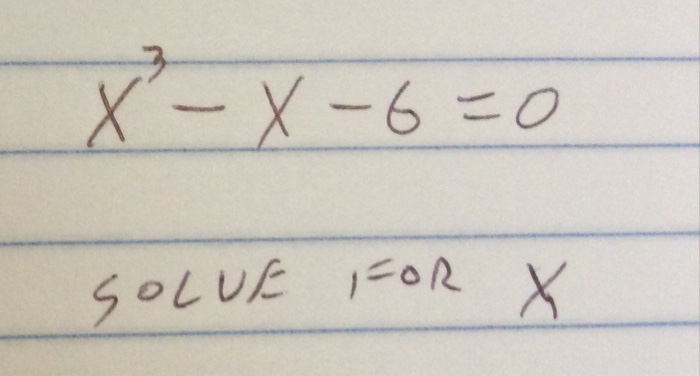 x³ - x - 6 = 0
SOLVE FOR X